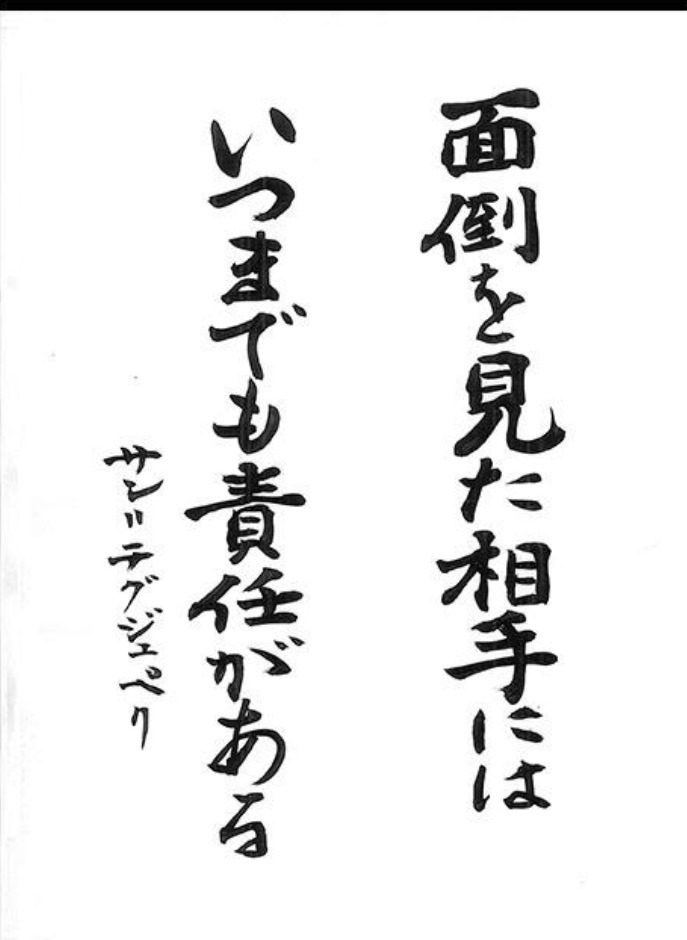 面倒を見た相手には
いつまでも責任がある
サン=テグジュペリ